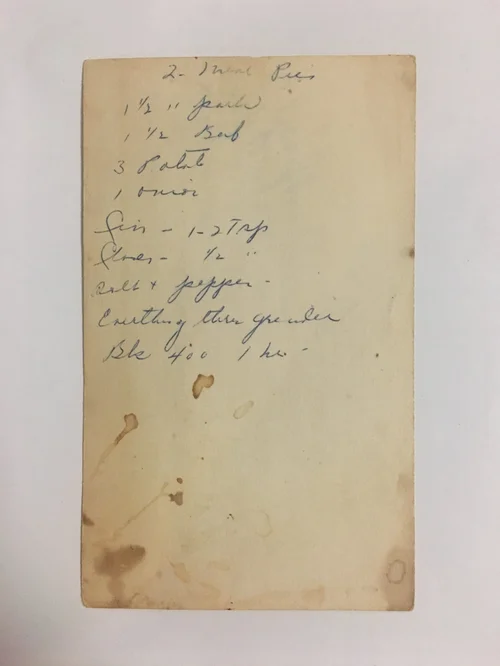 2 - Meat Pies
1 1/2 " pork
1 1/2 Beef
3 Potato
1 onion
Cin - 1-2 Tsp
Cloves - 1/2 "
Salt + pepper -
Everthing thru grinder
Bk 400 1 hr -